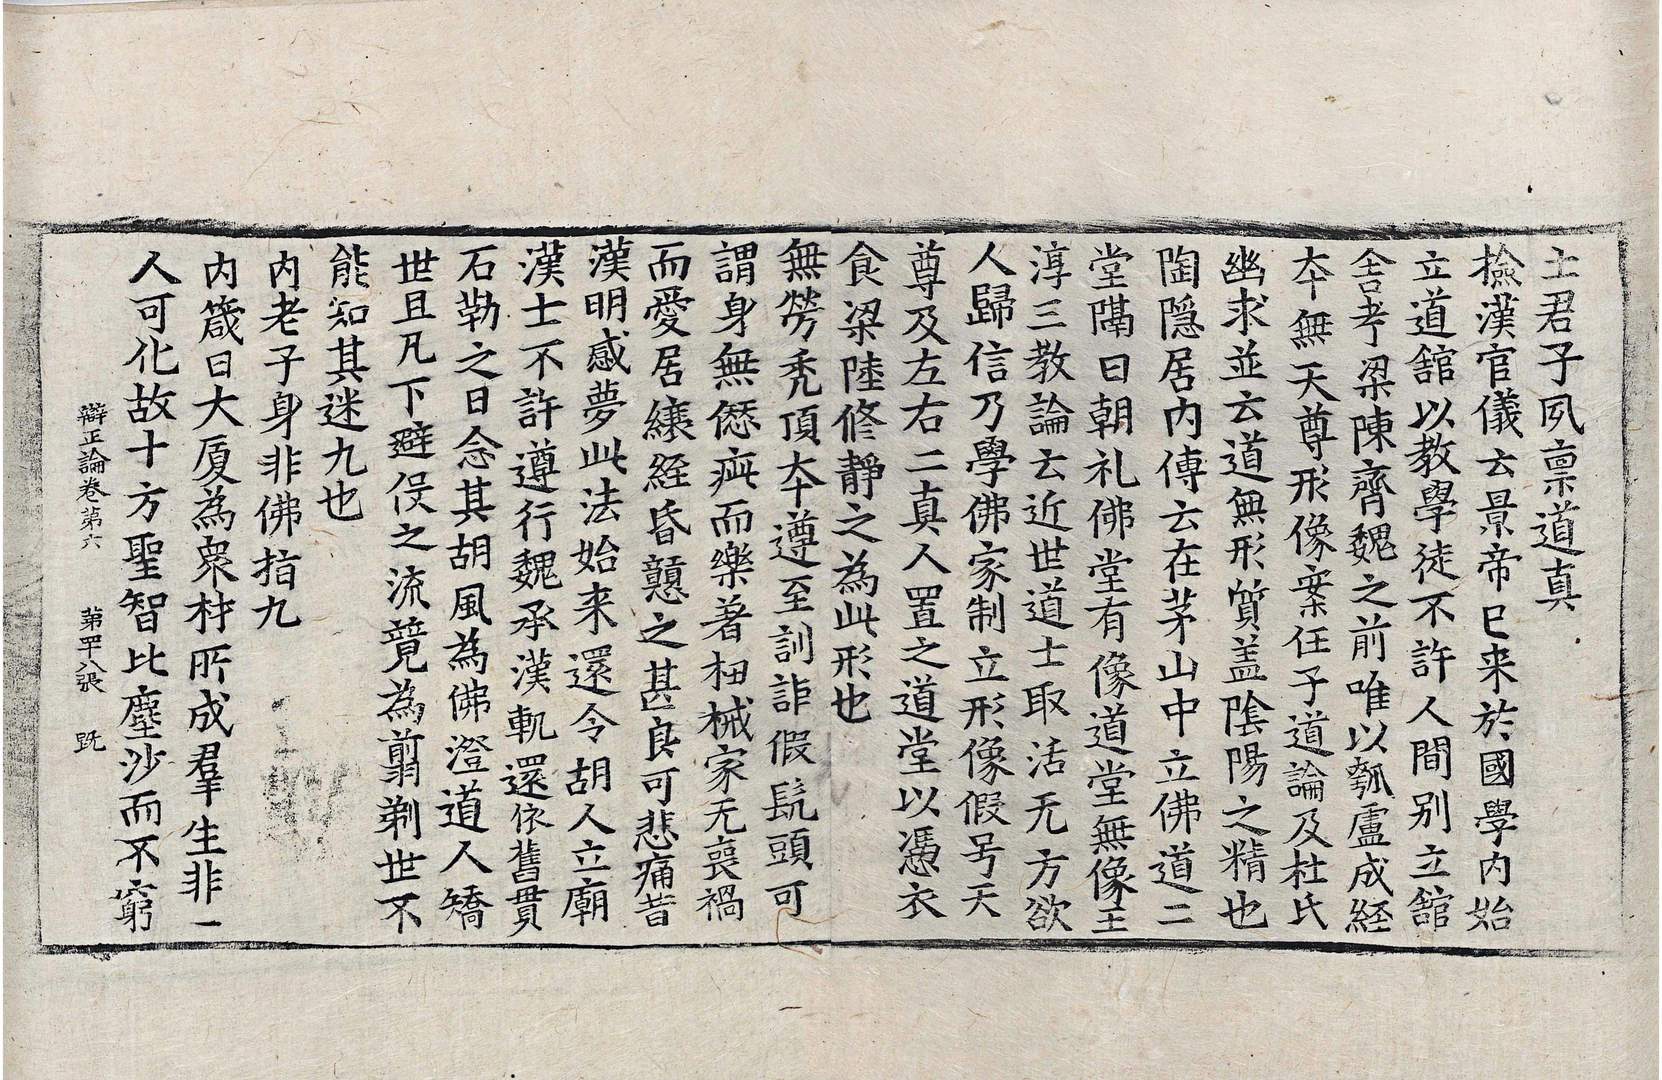 士君子夙禀道真
撿漢官儀云景帝已来於國學内始
立道舘以教學徒不許人間别立舘
舎考梁陳齊魏之前唯以瓠盧成経
夲無天尊形像案任子道論及杜氏
幽求並云道無形質盖隂陽之精也
陶隠居内傳云在茅山中立佛道二
堂隔日朝礼佛堂有像道堂無像王
淳三教論云近世道士取活无方欲
人歸信乃學佛家制立形像假号天
尊及左右二真人置之道堂以憑衣
食梁陸修静之為此形也
無勞秃頂夲遵至訓詎假髡頭可
謂身無愆疵而樂著杻械家无喪禍
而愛居縗絰昏戅之甚良可悲痛昔
漢明感夢此法始来還令胡人立廟
漢士不許遵行魏承漢軌還依舊貫
石勒之日念其胡風為佛澄道人矯
世且凡下避役之流競為剪剃世不
能知其迷九也
内老子身非佛指九
内箴曰大厦為衆材所成羣生非一
人可化故十方聖智比塵沙而不窮
辯正論卷第六 第罕八張 既